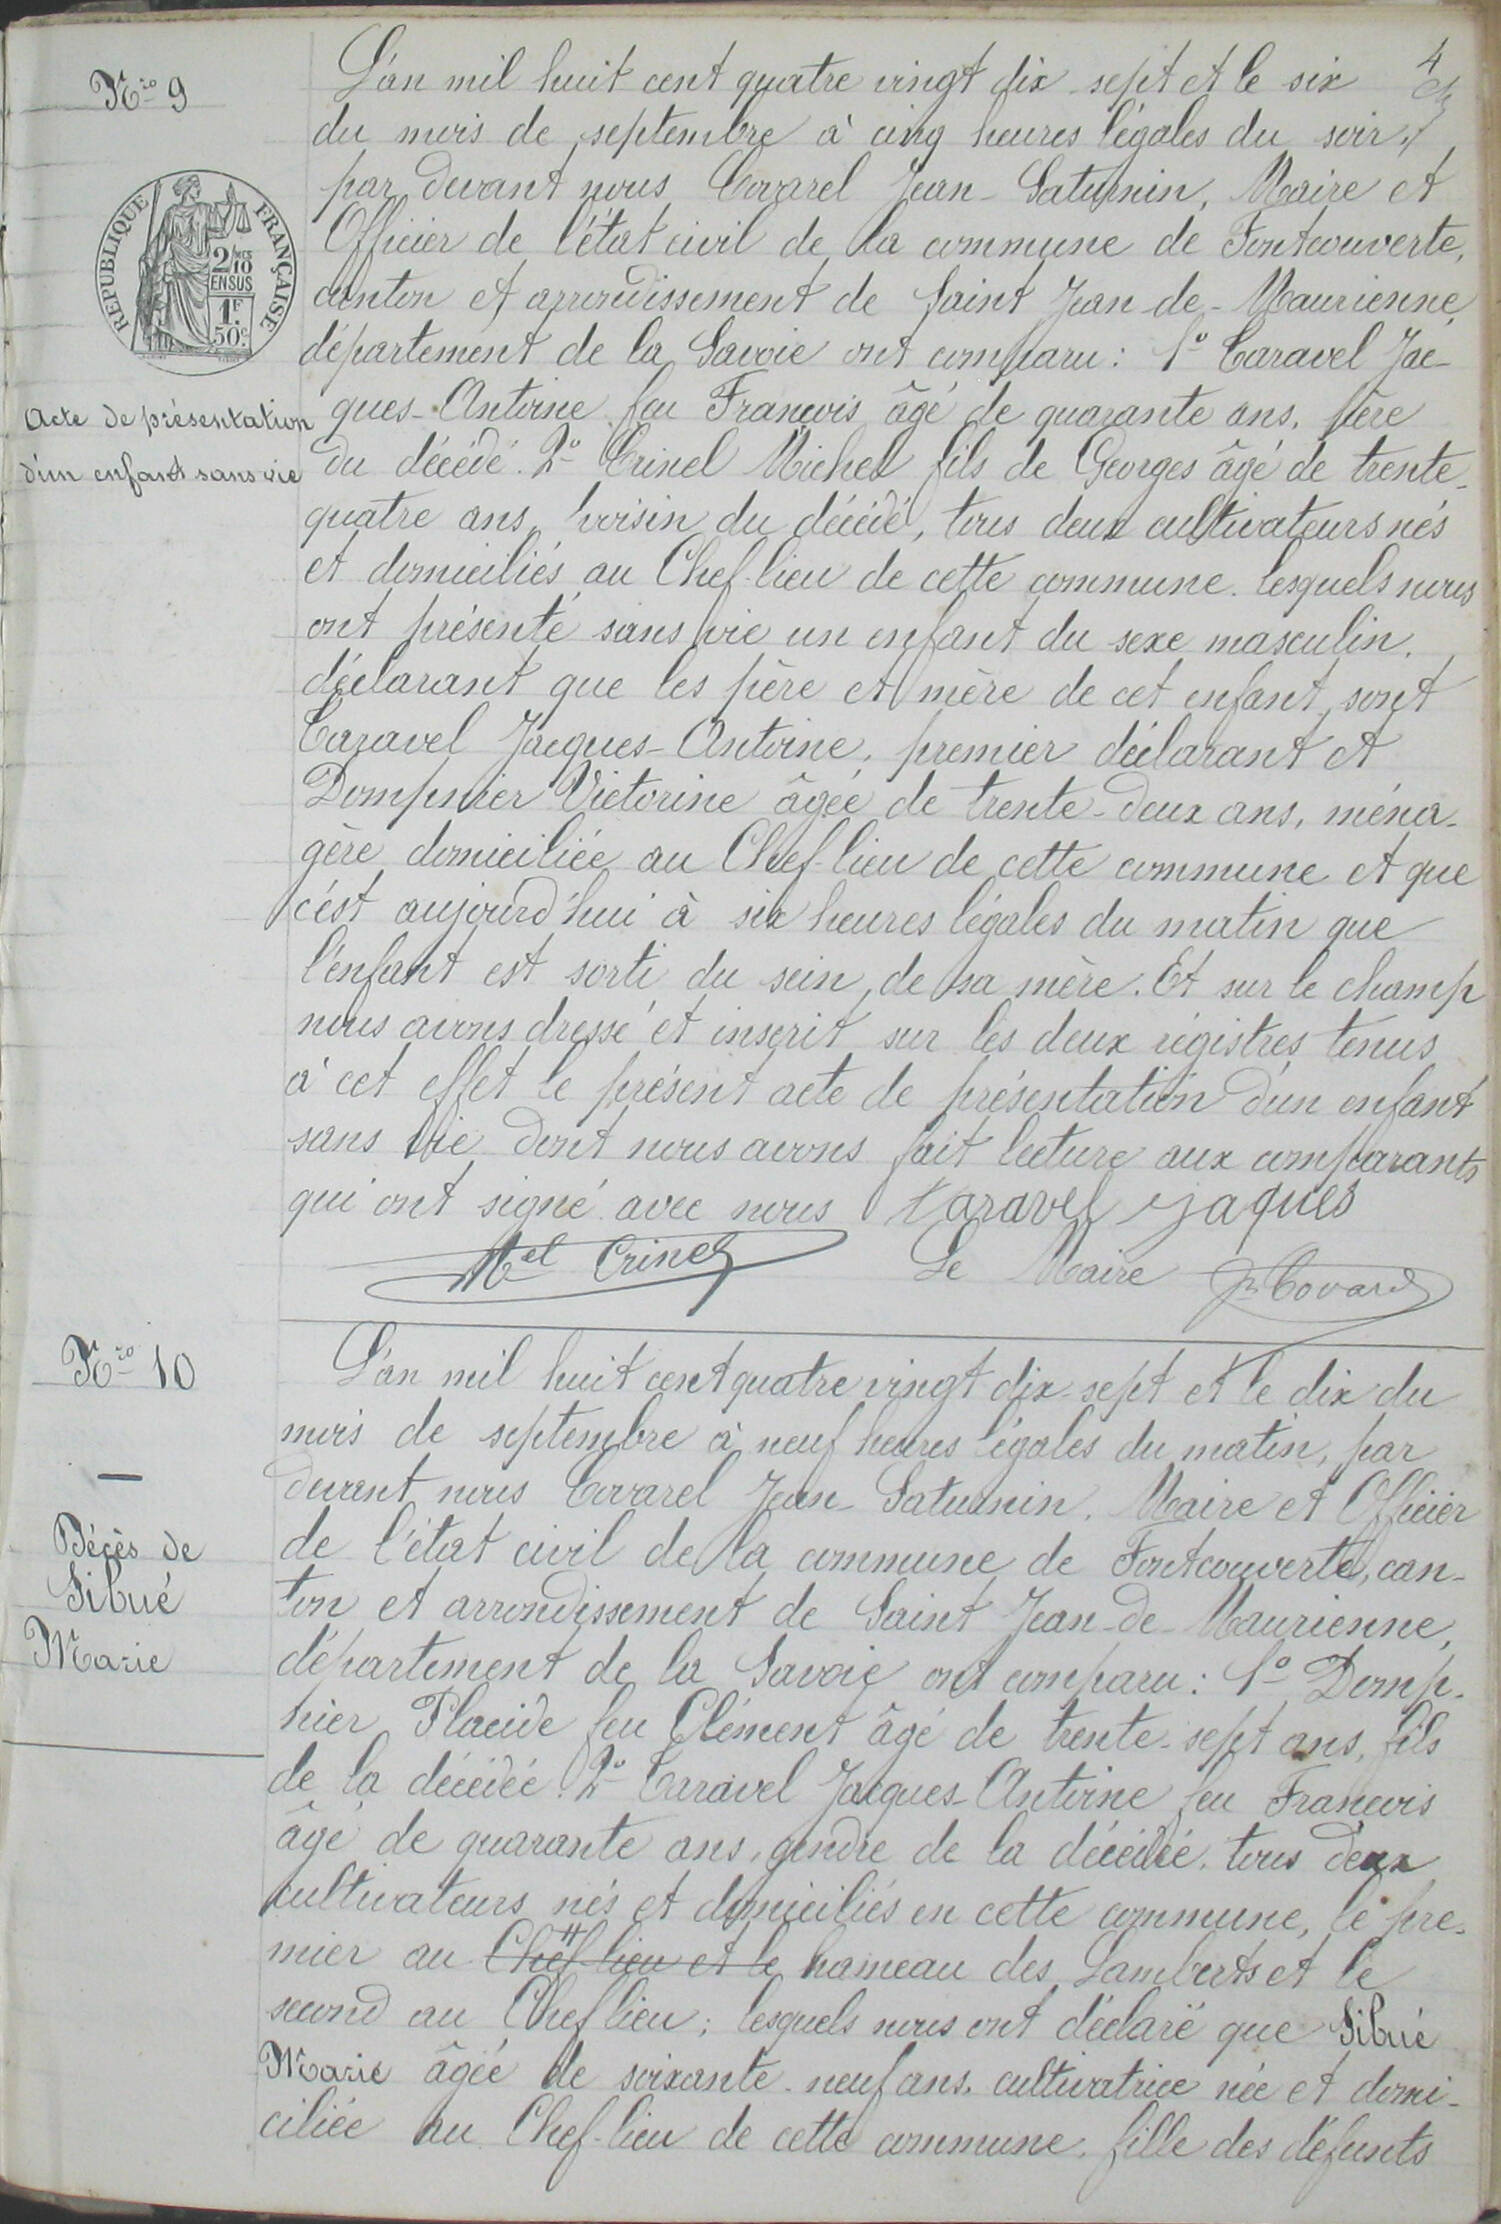 4
Nro 9
RÉPUBLIQUE FRANÇAISE
2/10
EN SUS
1F.
50c.
Acte de présentation
d'un enfant sans vie
L'an mil huit cent quatre vingt dix-sept et le six
du mois de septembre à cinq heures légales du soir,
par devant nous Covarel Jean-Saturnin, Maire et
Officier de l'état civil de la commune de Fontcouverte,
canton et arrondissement de Saint Jean-de-Maurienne,
département de la Savoie ont comparu: 1o Caravel Jac-
ques-Antoine feu François âgé de quarante ans, père
du décédé. 2o Crinel Michel fils de Georges âgé de trente-
quatre ans, voisin du décédé, tous deux cultivateurs nés
et domiciliés au Chef-lieu de cette commune. lesquels nous
ont présenté sans vie un enfant du sexe masculin.
déclarant que les père et mère de cet enfant sont
Caravel Jacques-Antoine, premier déclarant et
Dompnier Victorine âgée de trente-deux ans, ména-
gère domiciliée au Chef-lieu de cette commune et que
c'est aujourd'hui à six heures légales du matin que
l'enfant est sorti du sein de sa mère. Et sur le champ
nous avons dressé et inscrit sur les deux régistres tenus
à cet effet le présent acte de présentation d'un enfant
sans vie dont nous avons fait lecture aux comparants
qui ont signé avec nous Caravel Jaques
Mel Crinel Le Maire J Covarel
Nro 10
Décès de
Sibué
Marie
L'an mil huit cent quatre vingt dix-sept et le dix du
mois de septembre à neuf heures légales du matin, par
devant nous Covarel Jean-Saturnin, Maire et Officier
de l'état civil de la commune de Fontcouverte, can-
ton et arrondissement de Saint Jean-de-Maurienne,
département de la Savoie ont comparu: 1o Domp-
nier Placide feu Clément âgé de trente-sept ans, fils
de la décédée. 2o Caravel Jacques-Antoine feu François
âgé de quarante ans, gendre de la décédée. tous deux
cultivateurs nés et domiciliés en cette commune, le pre-
mier au Chef-lieu et le hameau des Lamberts et le
second au Chef lieu; lesquels nous ont déclaré que Sibué
Marie âgée de soixante-neuf ans, cultivatrice née et domi-
ciliée au Chef-lieu de cette commune, fille des défunts